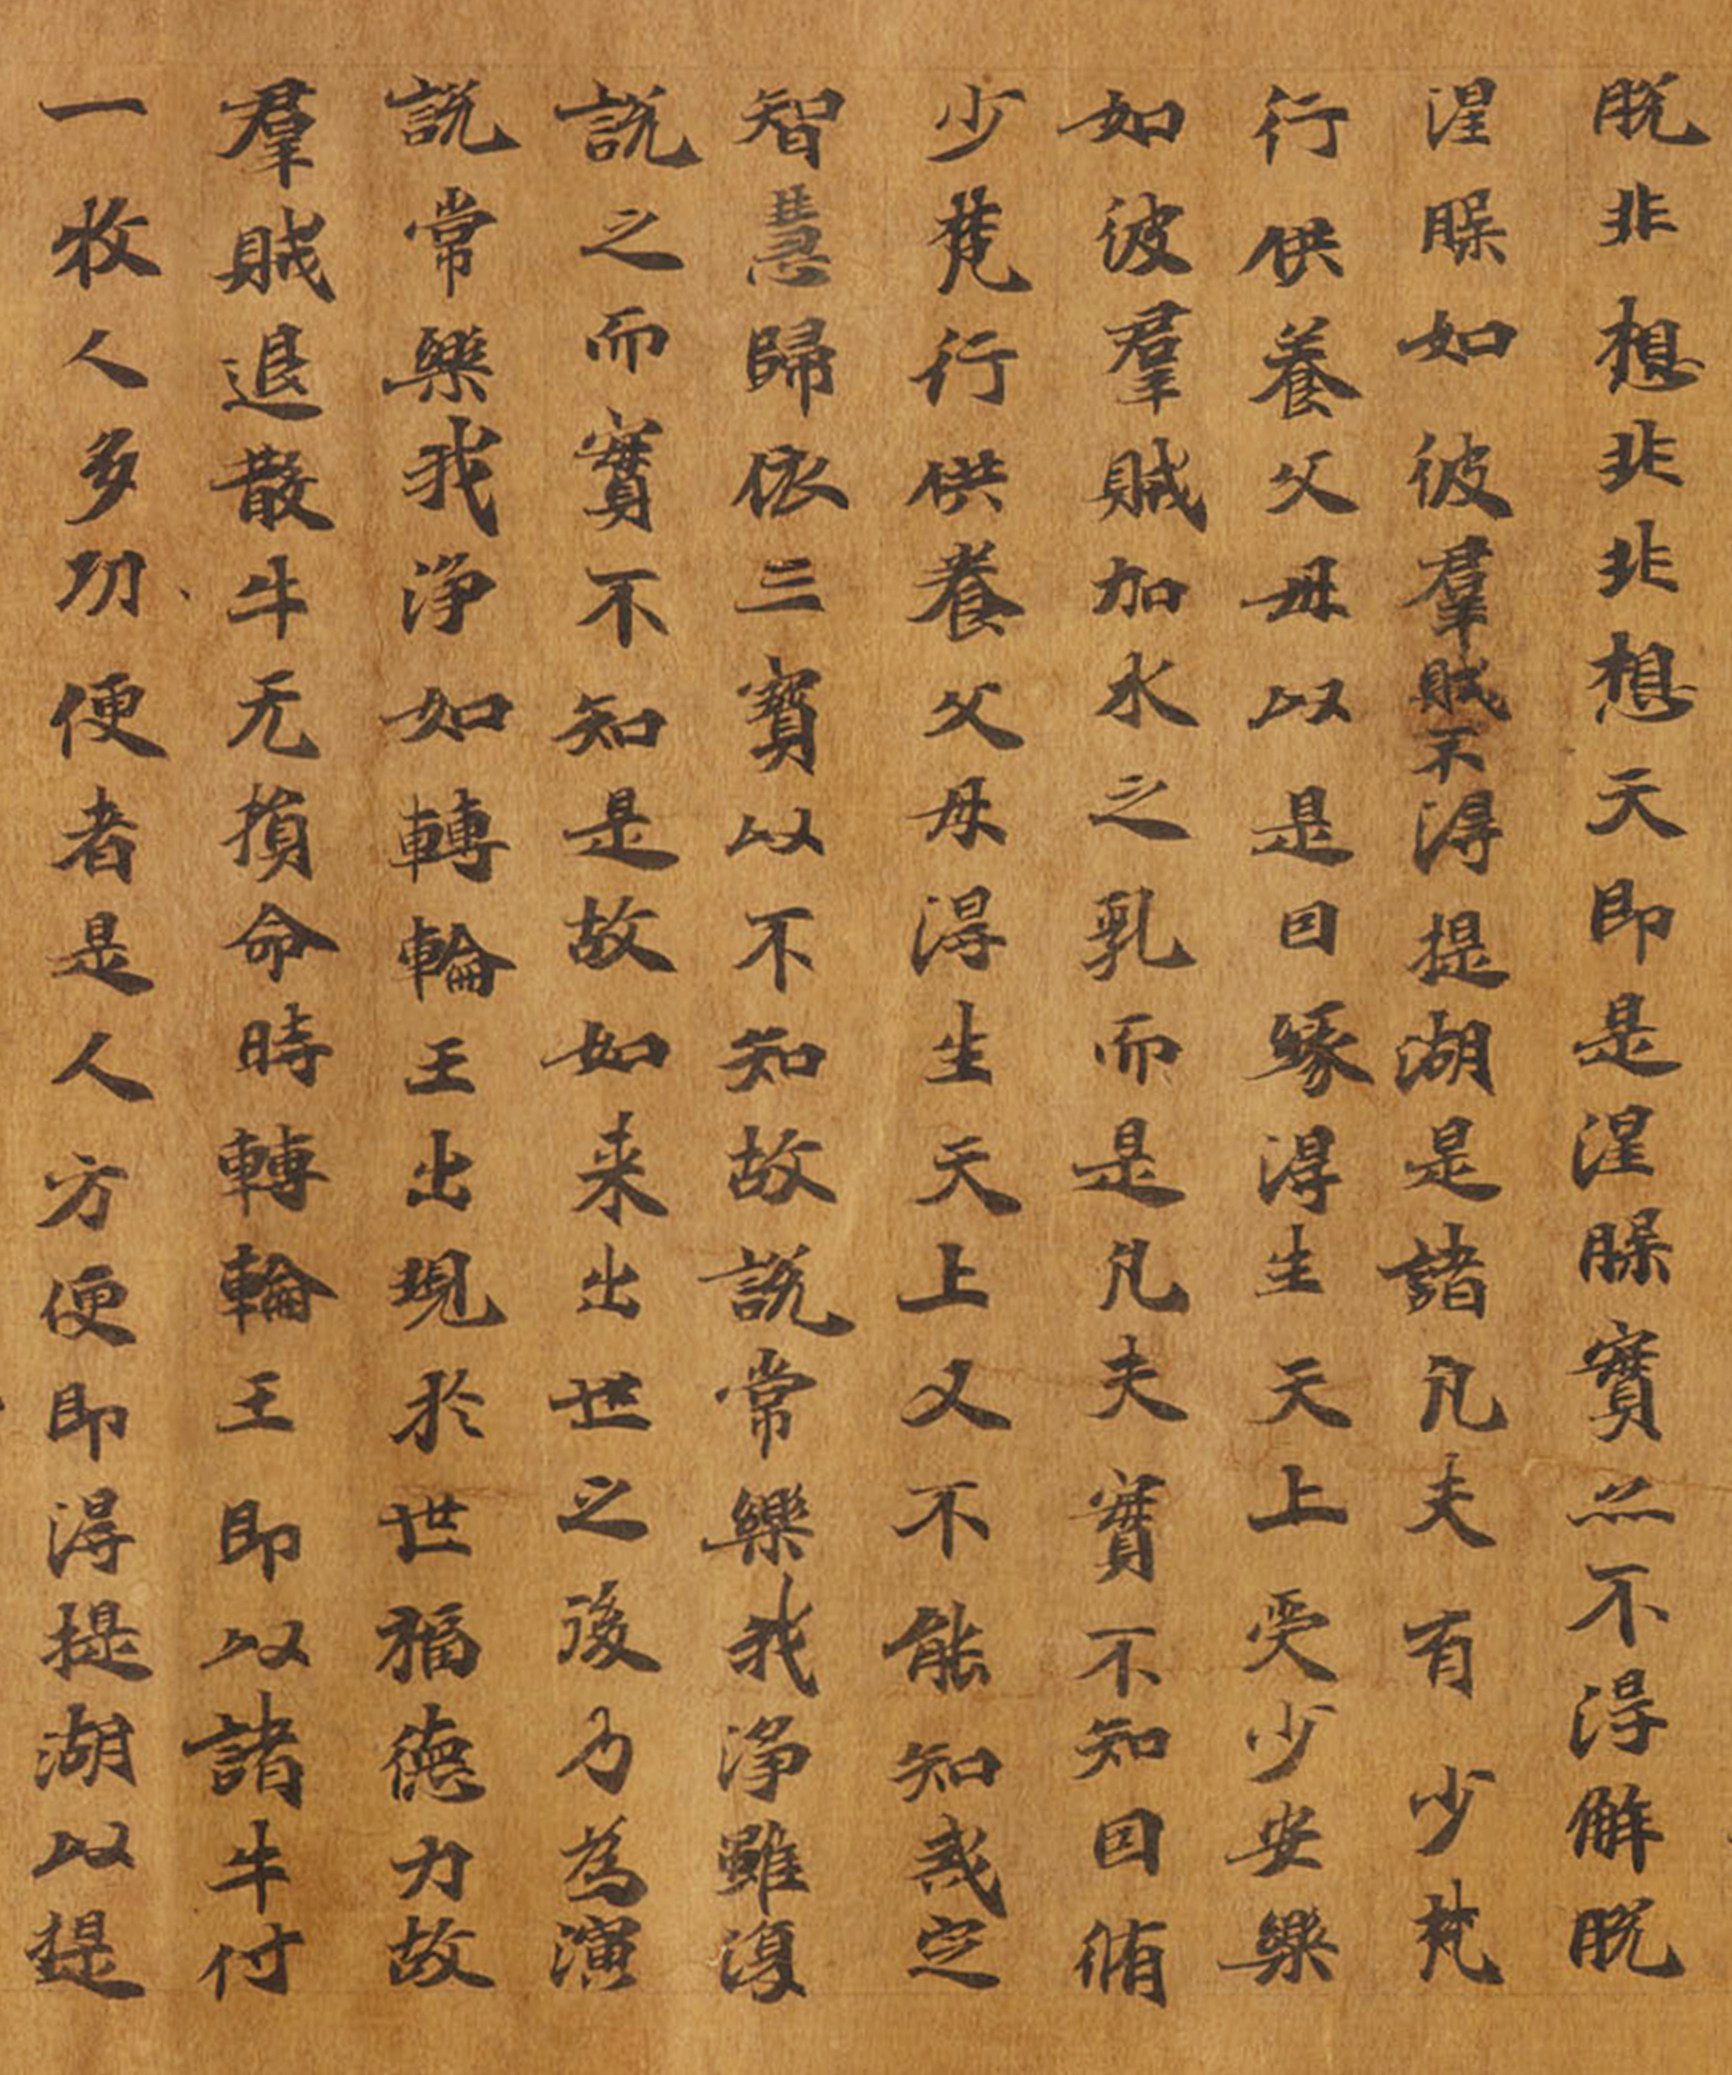 脫非想非非想天即是涅槃實亦不得解脫
涅槃如彼羣賊不得提湖是諸凡夫有少梵
行供養父母以是因緣得生天上受少安樂
如彼羣賊加水之乳而是凡夫實不知因脩
少梵行供養父母得生天上又不能知戒定
智慧歸依三寶以不知故說常樂我淨雖復
說之而實不知是故如来出世之後乃為演
說常樂我淨如轉輪王出現於世福德力故
羣賊退散牛无損命時轉輪王即以諸牛付
一牧人多功便者是人方便即得提湖以提